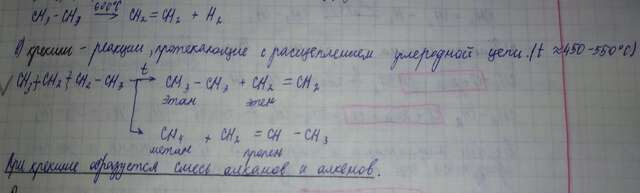 CH₃-CH₃ 600°C→ CH₂=CH₂ + H₂
крекинг - реакции, протекающие с расщеплением углеродной цепи. (t ≈ 450-550°C)
CH₃+CH₂+CH₂-CH₃ t→ CH₃-CH₃ + CH₂=CH₂
этан этен
CH₄ + CH₂=CH-CH₃
метан пропен
При крекинге образуется смесь алканов и алкенов.